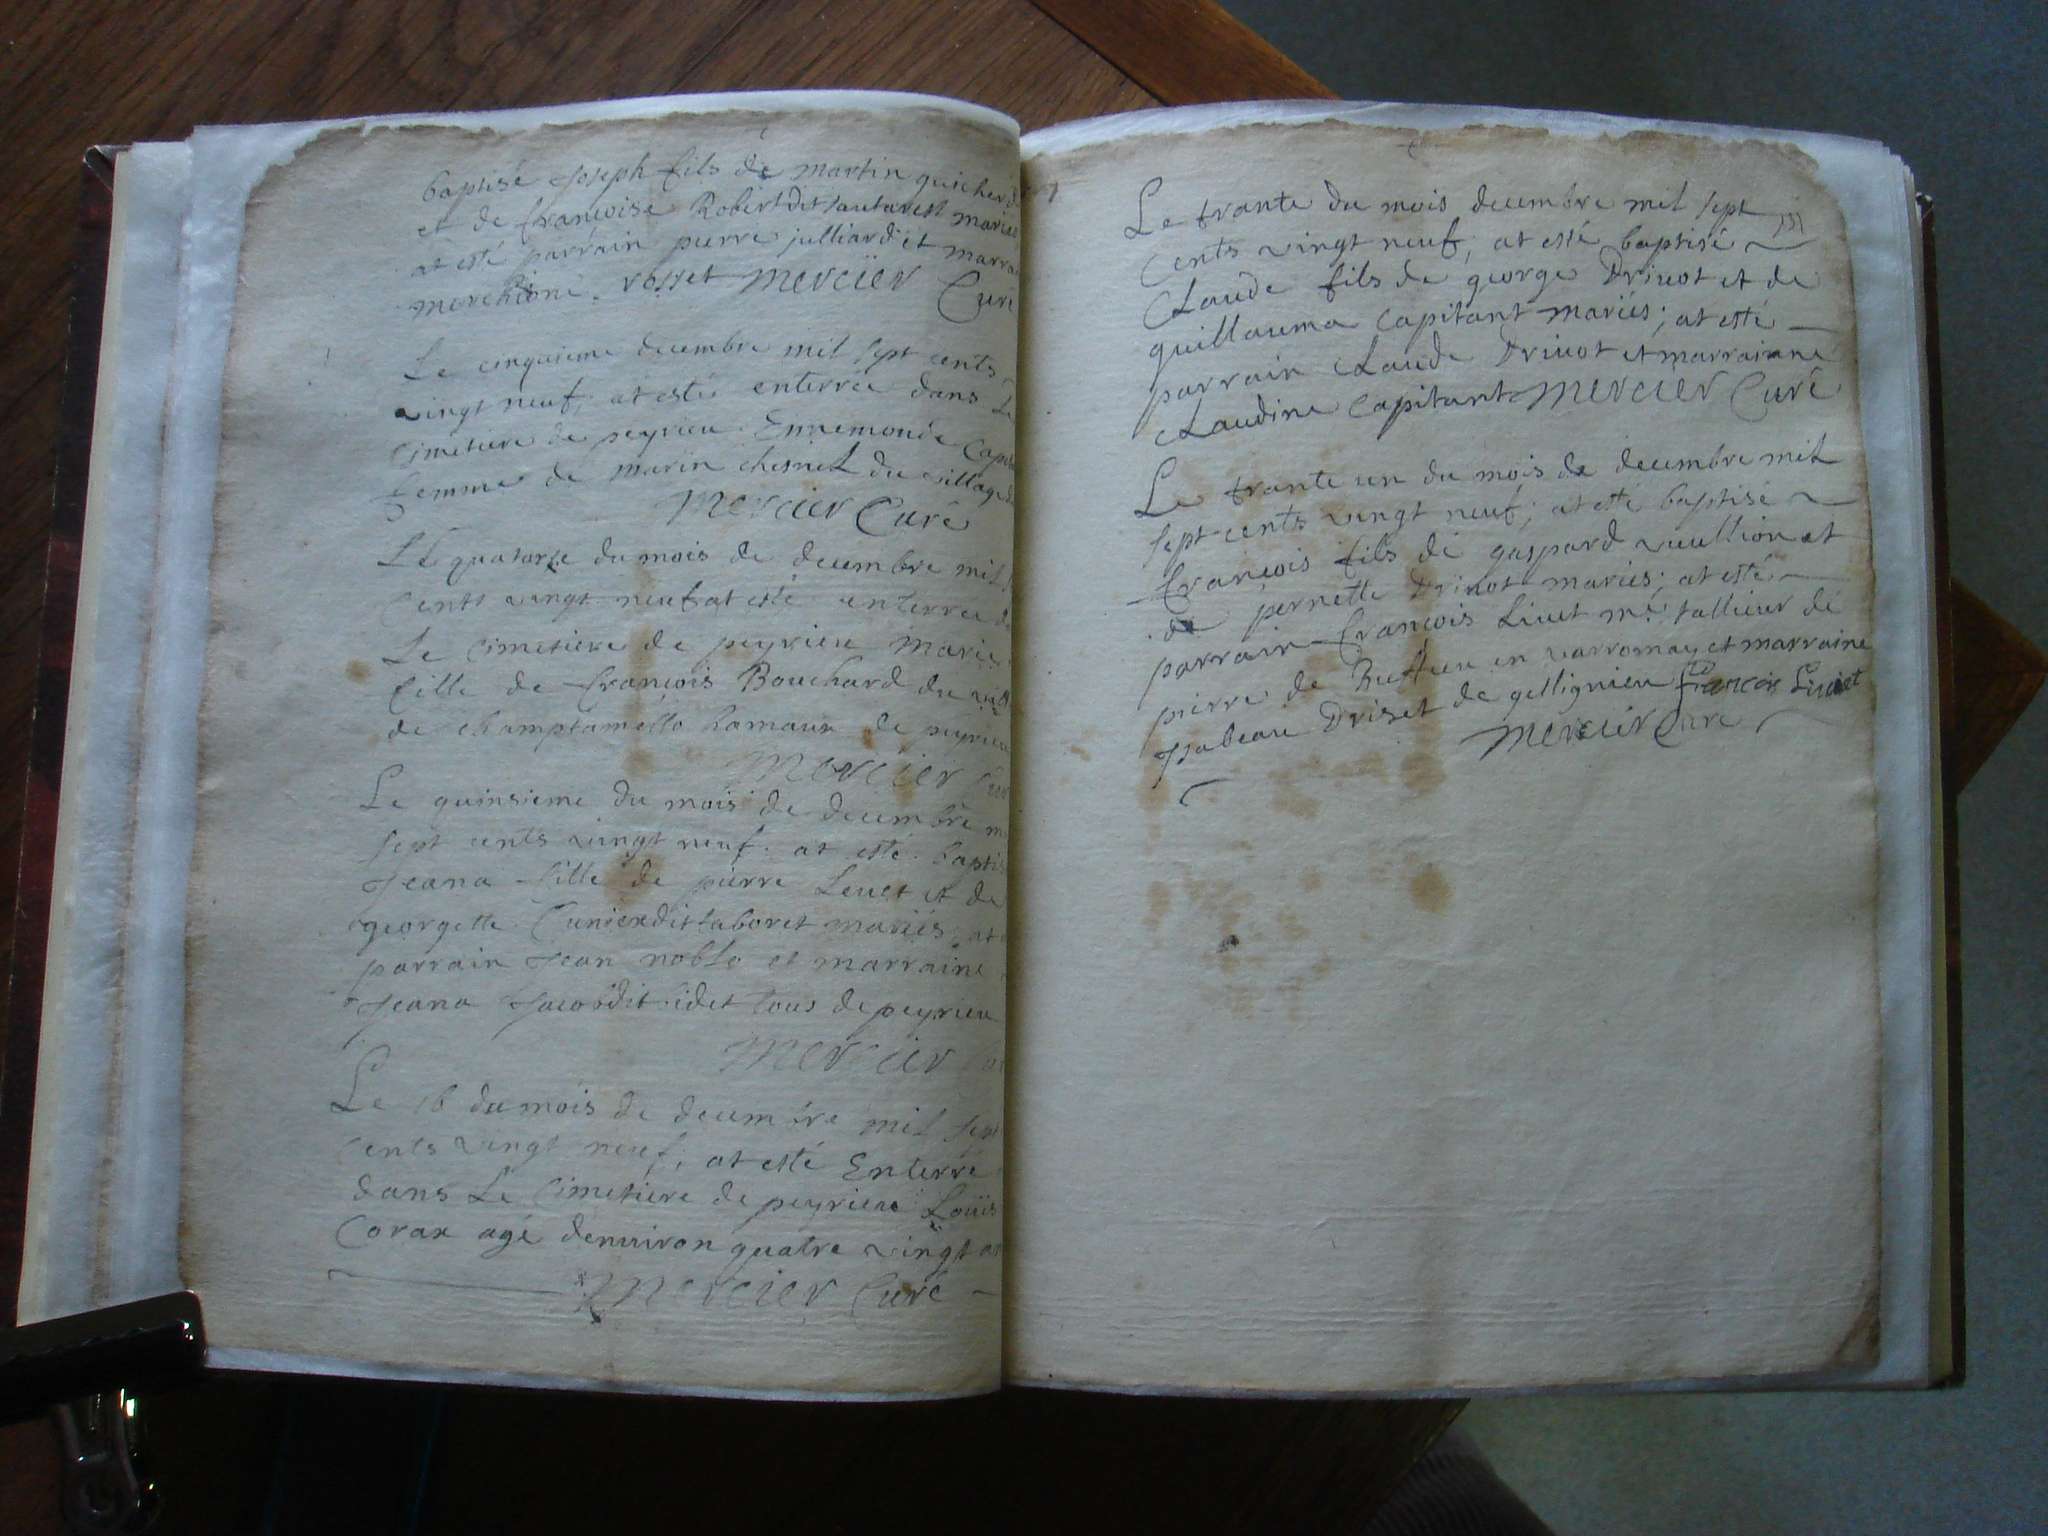 baptisé Joseph fils de martin guicherd
et de françoise Robert dit sautaret mariés
at esté parrain pierre julliard et marra
rosset mercier Curé
Le cinquieme decembre mil sept cents
vingt neuf; at esté enterrée dans Le
Cimetiere de peyrieu Ennemonde Capit
femme de marin chesnel du village d
Mercier Curé
Le quatorze du mois de decembre mil
Cents vingt neuf at esté enterree d
Le Cimetiere de peyrieu marie
fille de françois Bouchard du vill
de champtamello hamaux de peyrieu
Mercier Cur
Le quinsieme du mois de decembre m
sept cents vingt neuf. at esté baptis
Jeana fille de pierre Leuet et de
georgette Cunierdit laboret mariés, at
parrain Jean noble et marraine
Jeana Jacob dit idet tous de peyrieu
Mercier Cu
Le 16 du mois de decembre mil sept
Cents vingt neuf; at esté Enterré
dans Le Cimetiere de peyrieu Loüis
Corax agé denuiron quatre vingt an
Mercier Curé
Le trante du mois decembre mil sept
Cents vingt neuf, at esté baptisé
Claude fils de george Driuot et de
guillauma Capitant mariés; at esté
parrain Claude Driuot et marraiane
Claudine Capitant Mercier Curé
Le trante un du mois de decembre mil
sept cents vingt neuf; at esté baptisé
françois fils de gaspard vuillion et
de pernette Driuot mariés; at esté
parrain françois Liuet me. tallieur de
pierre de Rutieu en varromay et marraine
Jsabeau Driset de gellignieu françois Liuet
Mercier Cure